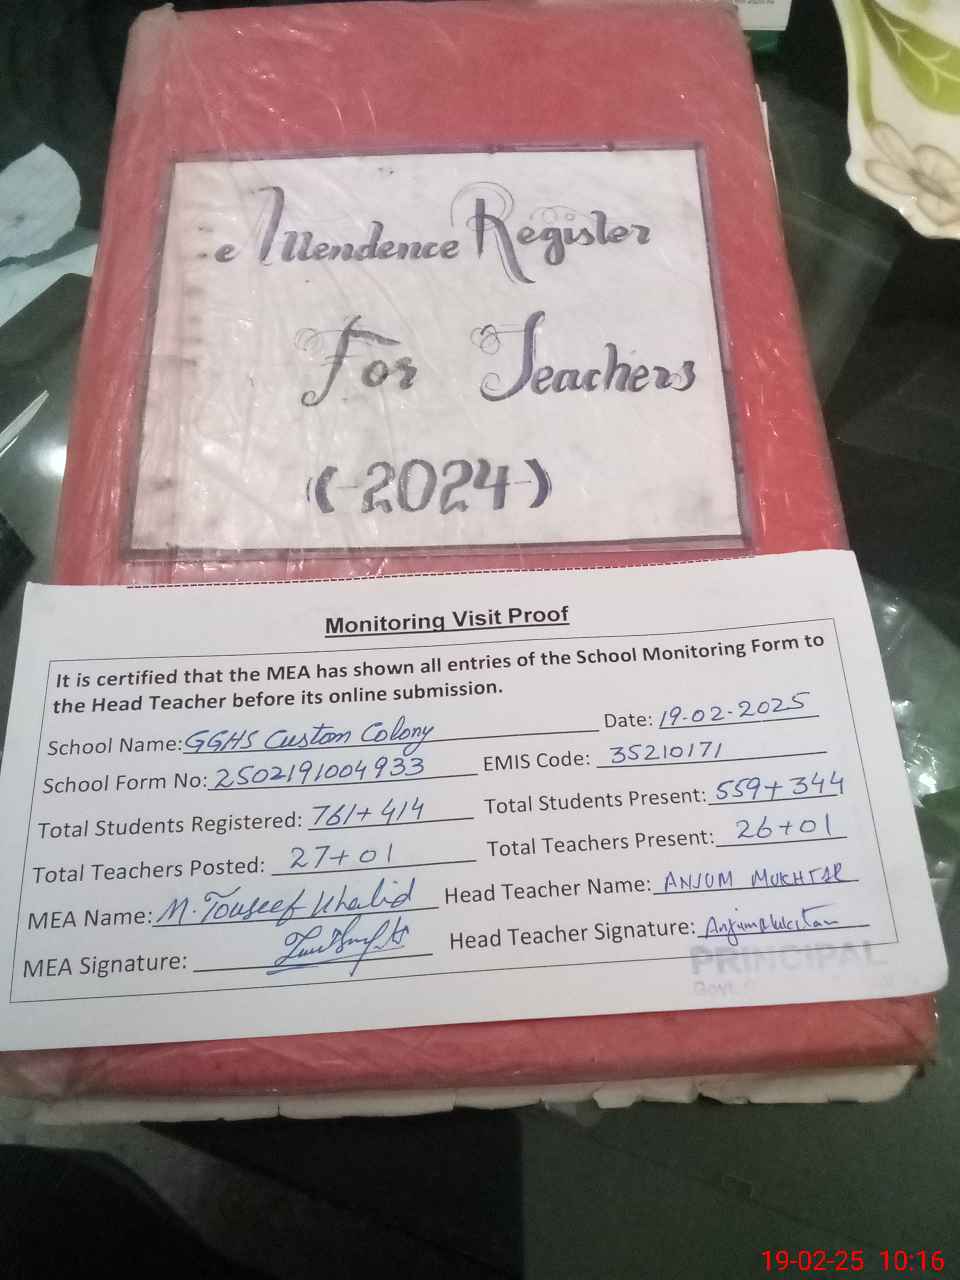 Attendence Register
For Teachers
(-2024-)
Monitoring Visit Proof
It is certified that the MEA has shown all entries of the School Monitoring Form to
the Head Teacher before its online submission.
School Name: GGHS Custom Colony Date: 19-02-2025
School Form No: 2502191004933 EMIS Code: 35210171
Total Students Registered: 761+414 Total Students Present: 559+344
Total Teachers Posted: 27+01 Total Teachers Present: 26+01
MEA Name: M. Touseef Khalid Head Teacher Name: ANJUM MUKHTAR
MEA Signature: Head Teacher Signature:
PRINCIPAL
Govt.
19-02-25 10:16